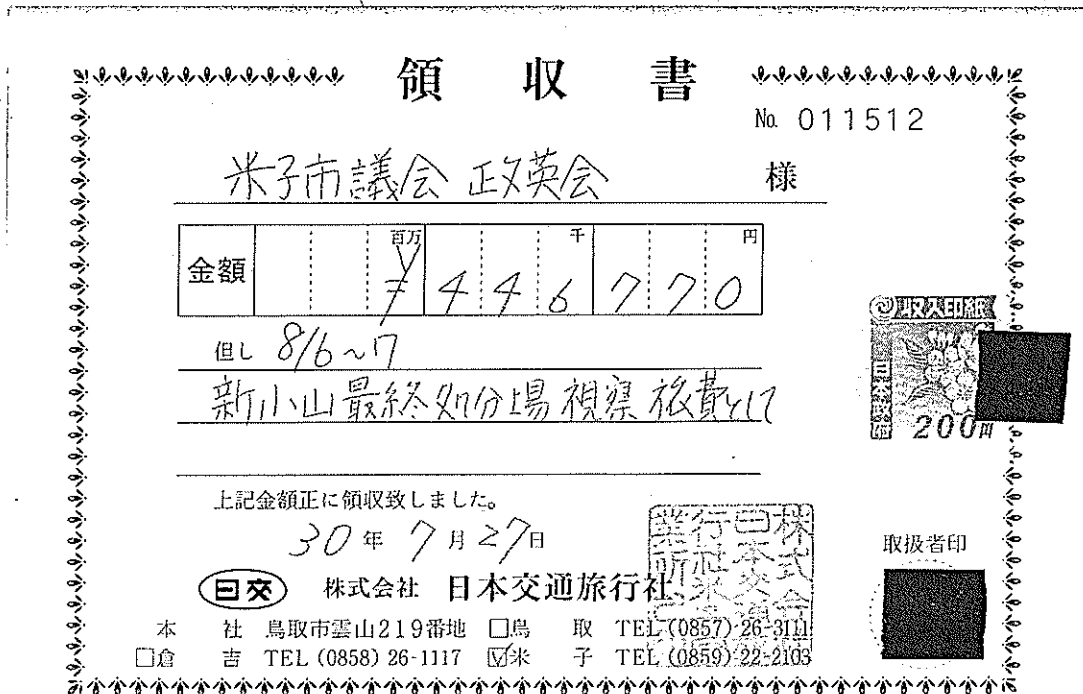 領 収 書
No. 011512
米子市議会 政英会 様
百万 千 円
金額 ¥ 4 4 6 7 7 0
但し 8/6~7
新小山最終処分場視察 旅費として
収入印紙
日本政府
200円
上記金額正に領収致しました。
30年 7月27日
取扱者印
日交 株式会社 日本交通旅行社
本 社 鳥取市雲山219番地 □鳥 取 TEL (0857) 26-3111
□倉 吉 TEL (0858) 26-1117 ☑米 子 TEL (0859) 22-2103